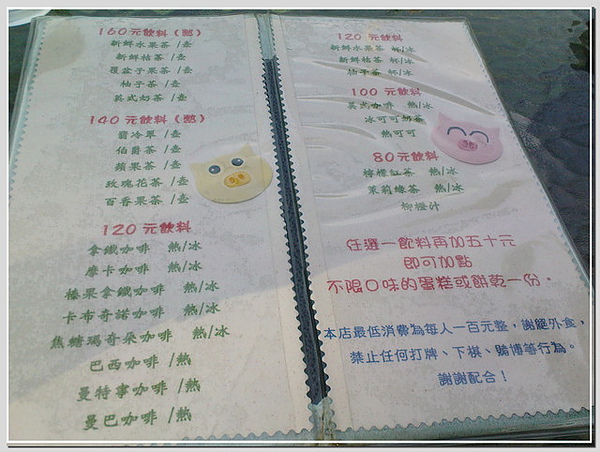 160元飲料（熱）
新鮮水果茶 /壺
新鮮桔茶 /壺
覆盆子果茶 /壺
柚子茶 /壺
英式奶茶 /壺
140元飲料（熱）
翡冷翠 /壺
伯爵茶 /壺
蘋果茶 /壺
玫瑰花茶 /壺
百香果茶 /壺
120元飲料
拿鐵咖啡 熱/冰
摩卡咖啡 熱/冰
榛果拿鐵咖啡 熱/冰
卡布奇諾咖啡 熱/冰
焦糖瑪奇朵咖啡 熱/冰
巴西咖啡 /熱
曼特寧咖啡 /熱
曼巴咖啡 /熱
120元飲料
新鮮水果茶 杯/冰
新鮮桔茶 杯/冰
柚子茶 杯/冰
100元飲料
美式咖啡 熱/冰
冰可可奶茶
熱可可
80元飲料
檸檬紅茶 熱/冰
茉莉綠茶 熱/冰
柳橙汁
任選一飲料再加五十元
即可加點
不限口味的蛋糕或餅乾一份。
本店最低消費為每人一百元整，謝絕外食，
禁止任何打牌、下棋、賭博等行為。
謝謝配合！